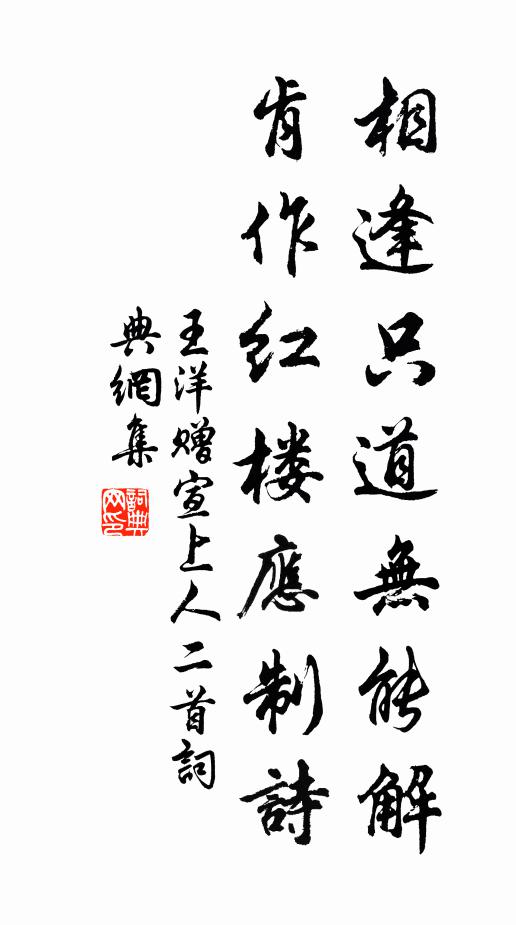 相逢只道無能解
肯作红楼應制詩
王洋赠宣上人二首詞
典網集
詞典
网印